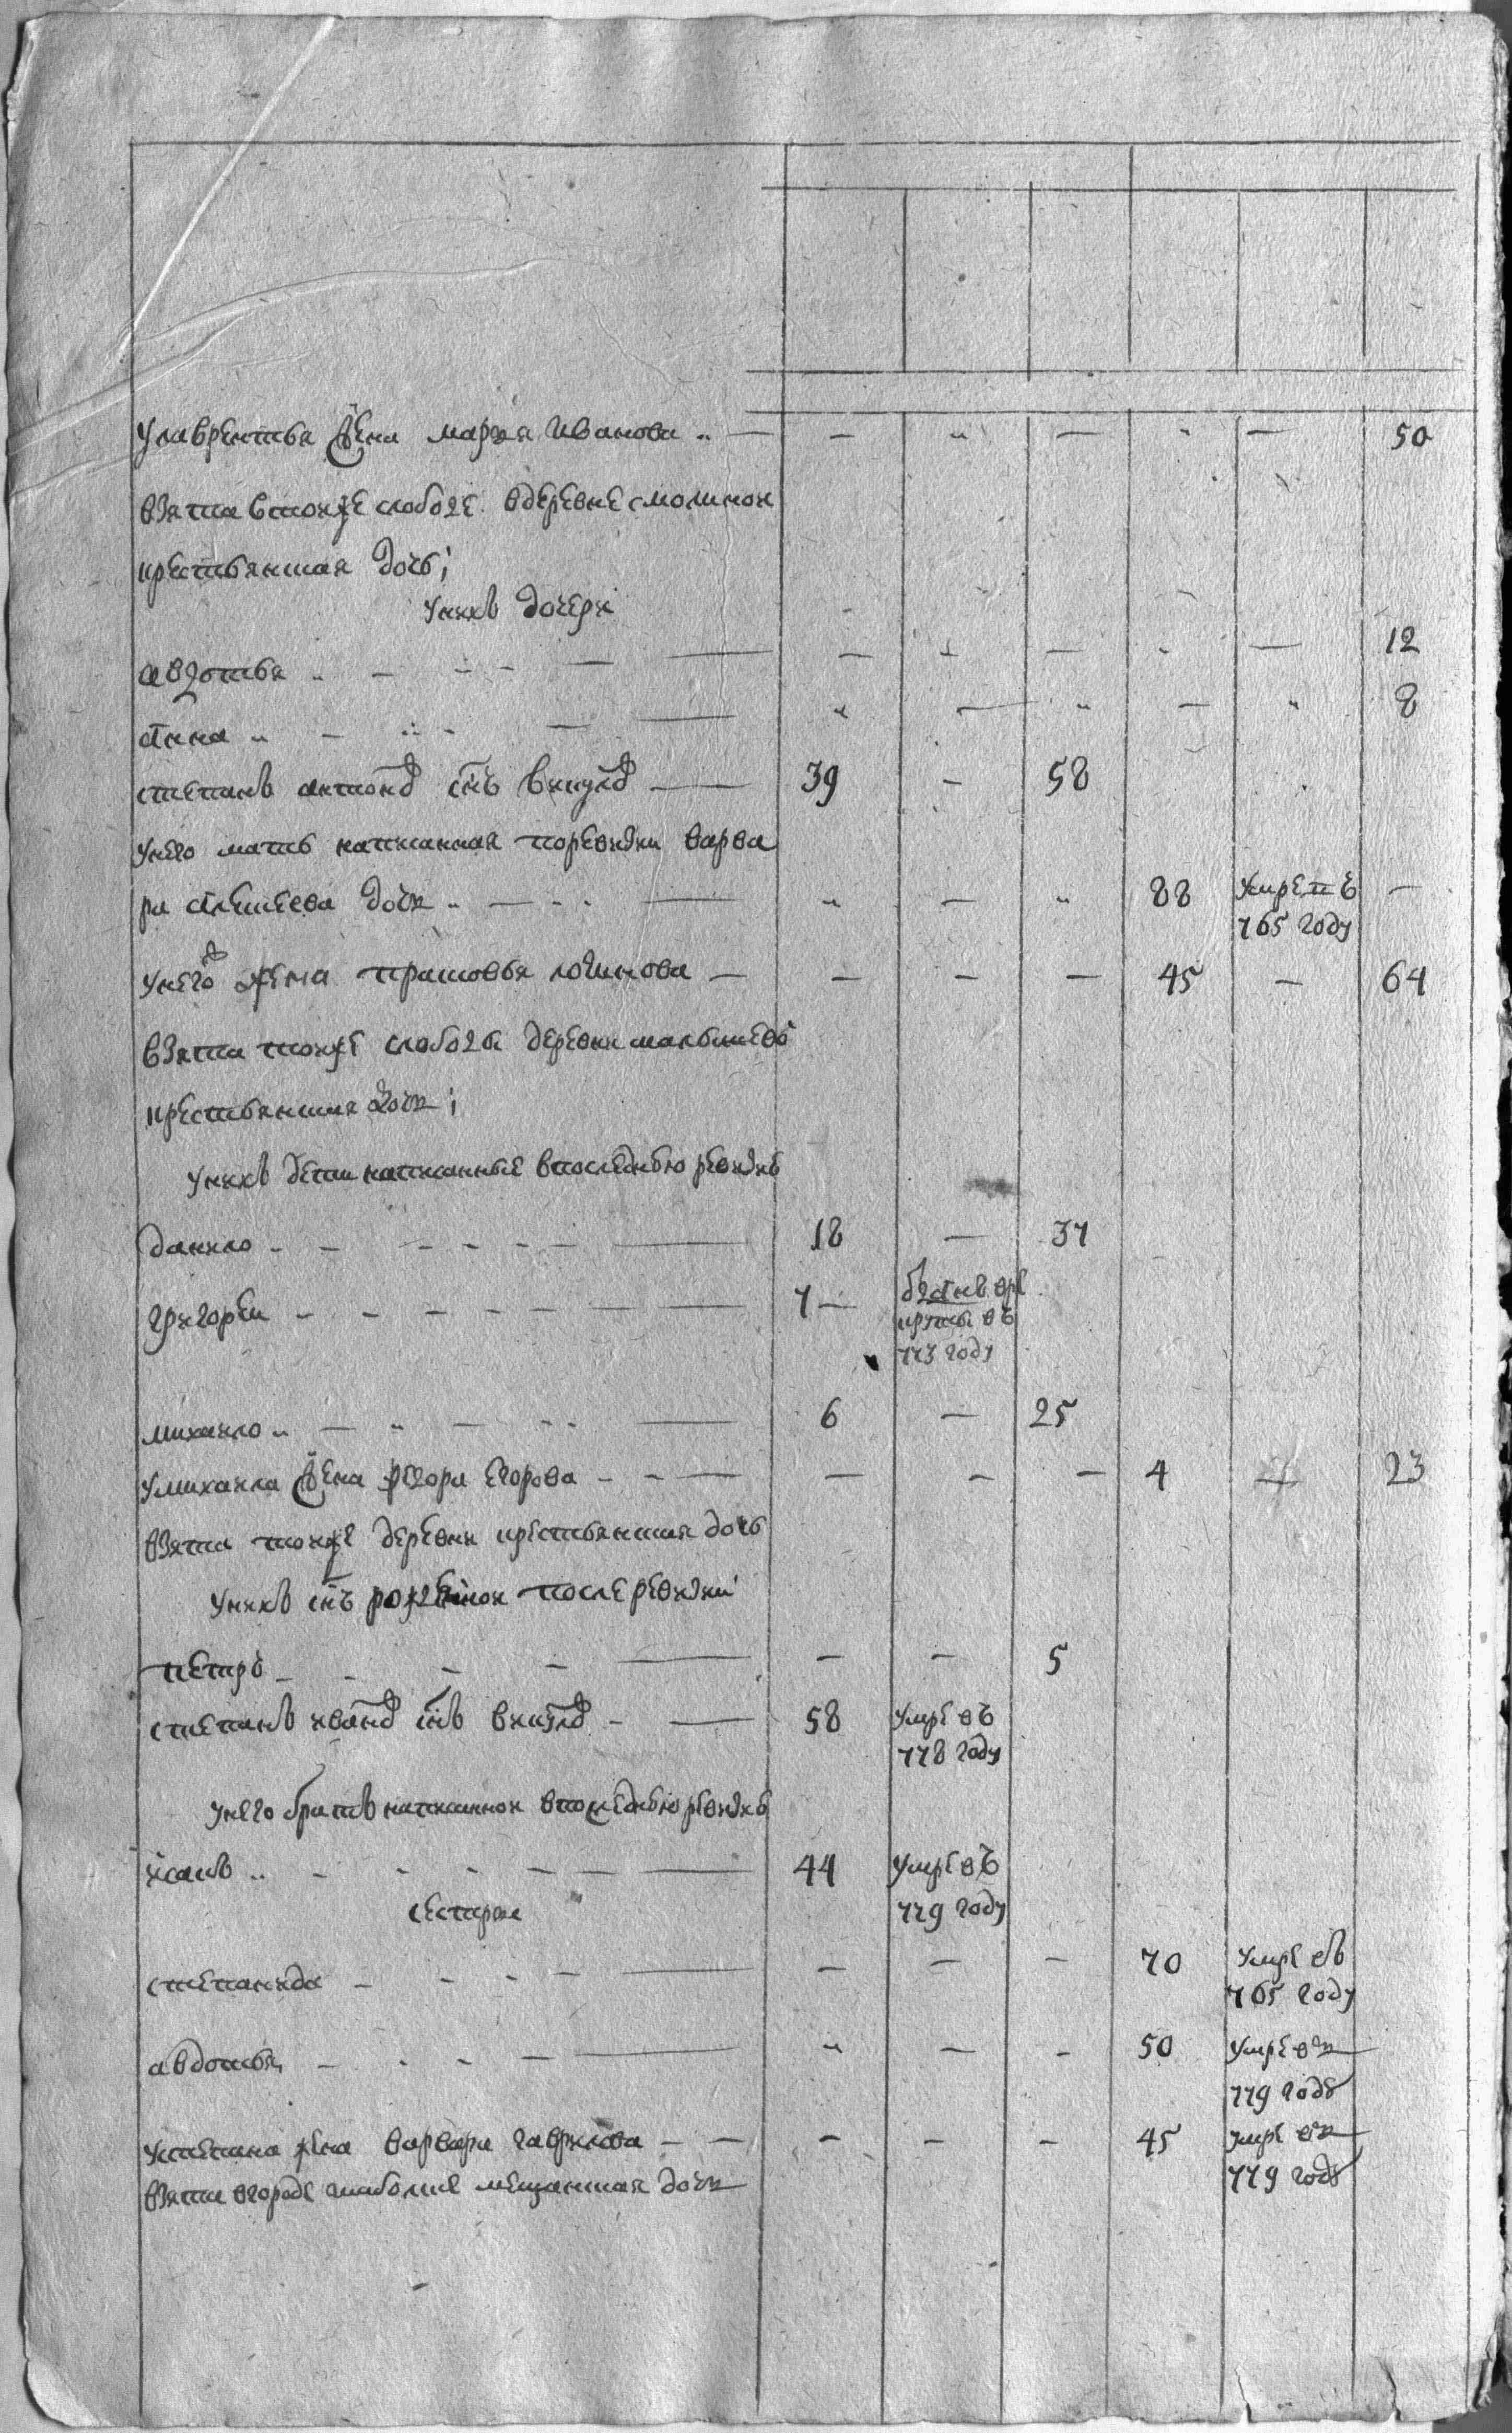 улаврентья жена марья иванова .. — — " — " — 50
взята втойже слободе вдеревне смолиной
крестьянская дочь;
унихъ дочери
авдотья — — — — — 12
анна — — — — — 8
степанъ антоновъ снъ викуловъ — 39 — 58
унего мать написанная поревизки варва
ра алексеева дочь — — — 88 умре въ —
765 году
унего жена прасковья логинова — — — — 45 — 64
взята тойже слободы деревни малышевой
крестьянская дочь;
унихъ дети написанные впоследнюю ревизию
данило — 18 — 37
григорей — 7 — отданъ врекруты въ
773 году
михайло — 6 — 25
умихайла жена федора егорова — — — — 4 — 23
взята тойже деревни крестьянская дочь
унихъ снъ рожденной после ревизии
петръ — — — 5
степанъ ивановъ снъ викуловъ — 58 умре въ
778 году
унего братъ написанной впоследнюю ревизию
исакъ — 44 умре въ
779 году
сестры
степанида — — — — 70 умре въ
765 году
авдотья — " — — 50 умре въ
779 году
устепана жена варвара гаврилова — — — — 45 умре въ
779 году
взята вгороде мещанская дочь